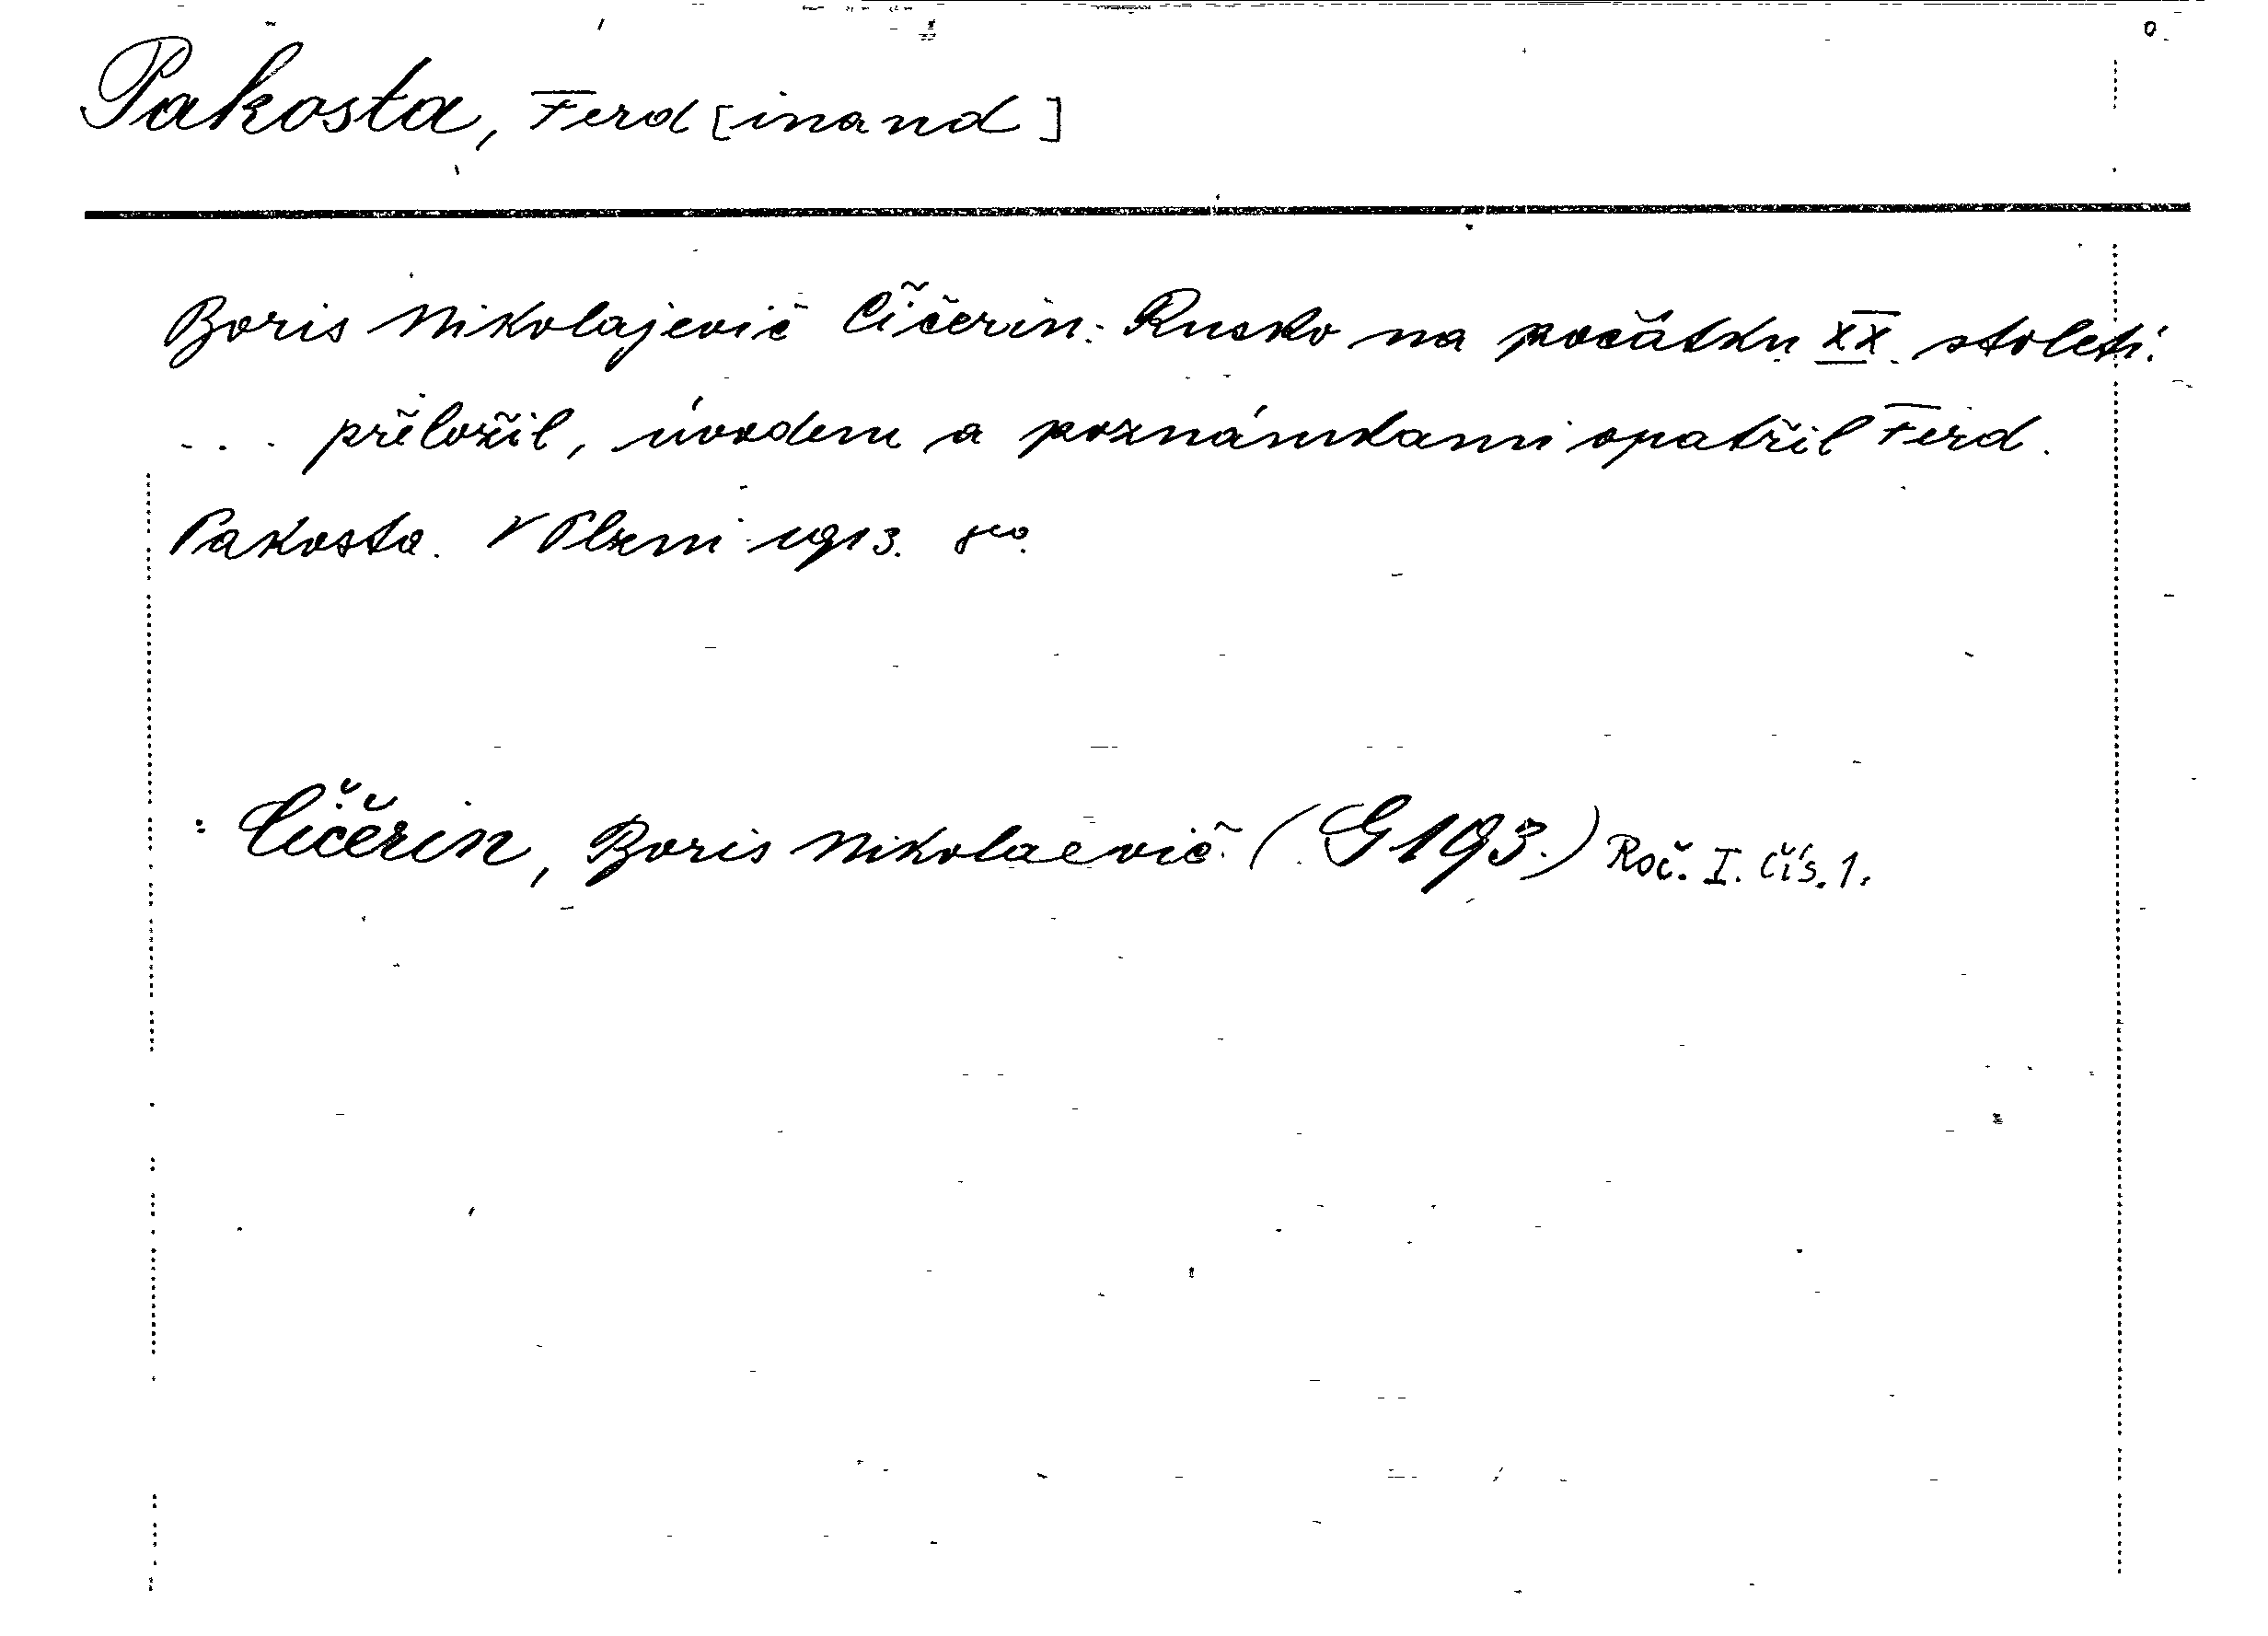 Pakosta, Ferd[inand]
Boris Nikolajevič Čičerin: Rusko na počátku XX. století.
... přeložil, úvodem a poznámkami opatřil Ferd.
Pakosta. V Plzni 1913. 8vo.
: Čičerin, Boris Nikolaevič. (G 193.) Roč. I. čís. 1.